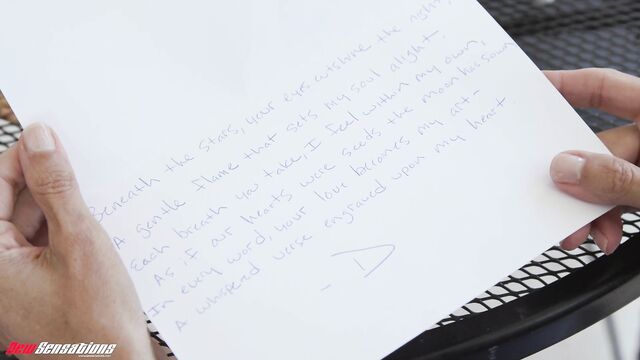 Beneath the stars, your eyes outshine the night,
A gentle flame that sets my soul alight.
Each breath you take, I feel within my own,
As if our hearts were seeds the moon has sown
In every word, your love becomes my art-
A whispered verse engraved upon my heart.
- D
NewSensations